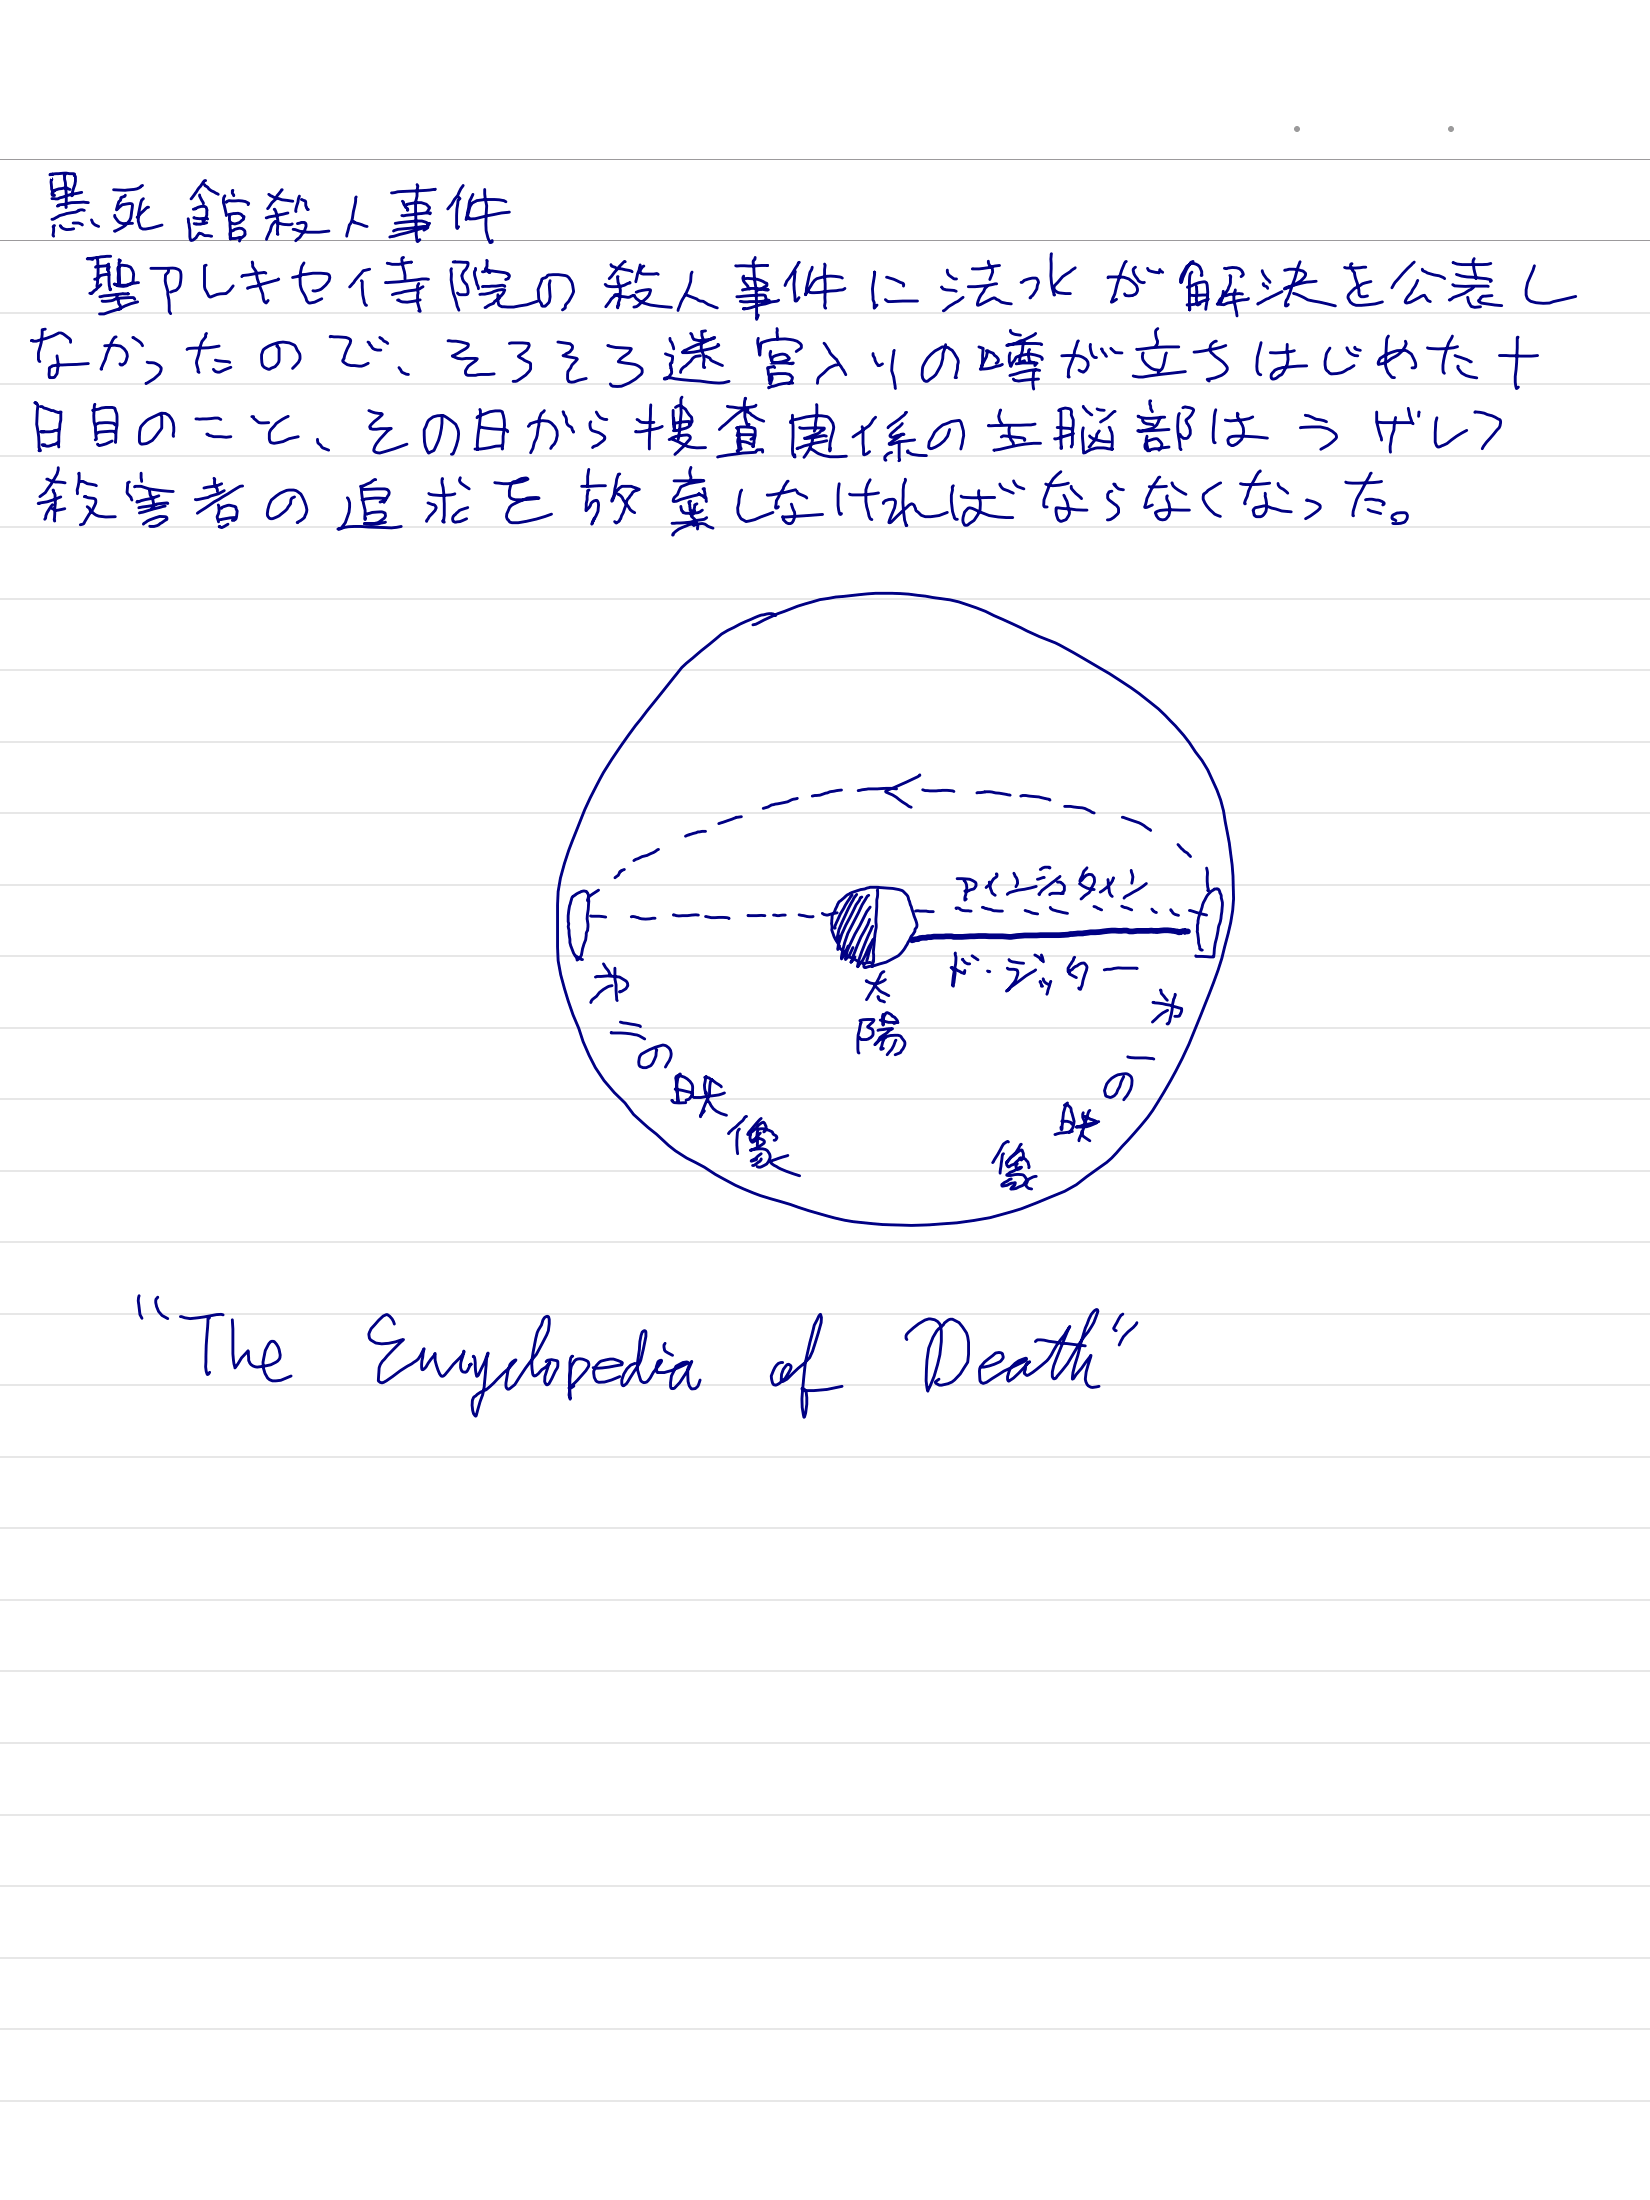 黒死館殺人事件
聖アレキセイ寺院の殺人事件に法水が解決を公表し
なかったので、そろそろ迷宮入りの噂が立ちはじめた十
日目のこと、その日から捜査関係の主脳部はラザレフ
殺害者の追求を放棄しなければならなくなった。
アインシタイン
ド・ジッター
太陽
第二の映像
第一の映像
"The Encyclopedia of Death"